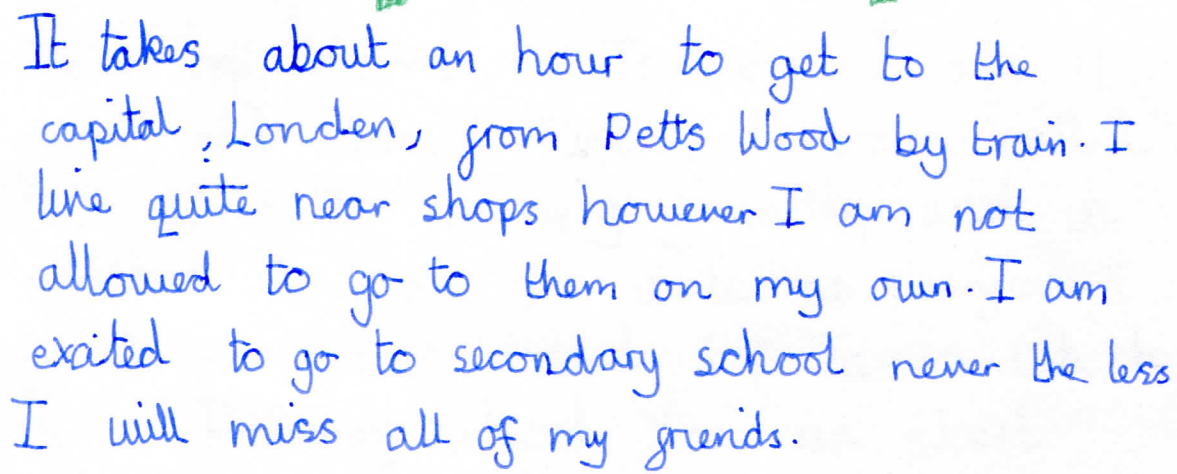 It takes about an hour to get to the
capital, Londen, from Petts Wood by train. I
live quite near shops however I am not
allowed to go to them on my own. I am
excited to go to secondary school never the less
I will miss all of my friends.